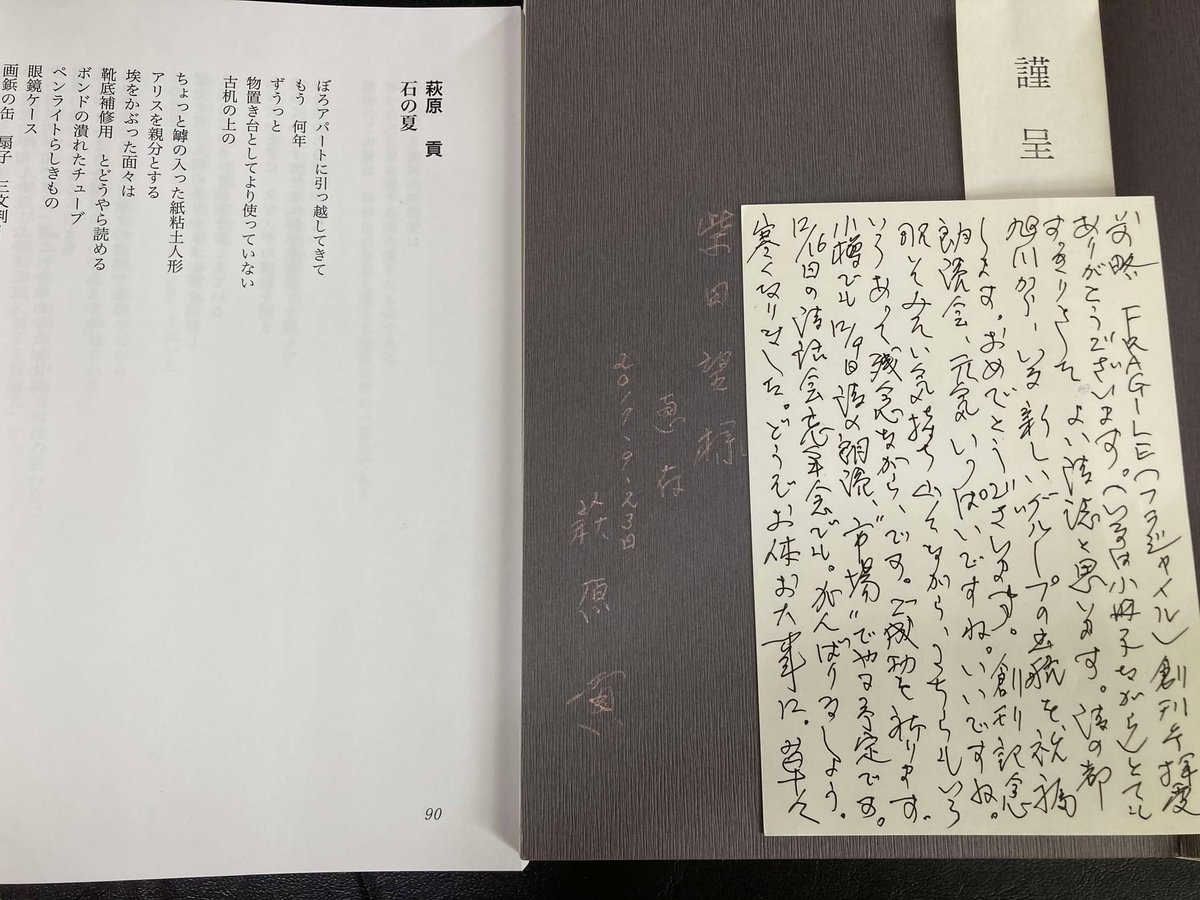 謹呈
前略 FRAGILE(フラジャイル)創刊号拝受
ありがとうございます。(いまは小冊子ながら)とても
すっきりとして よい詩誌と思います。詩の都
旭川から、いま新しいグループの出航を、祝福
します。おめでとうございます。創刊記念
朗読会、元気いっぱいですね。いいですね。
覗いてみたい気持ち山々ながら、こちらもいろ
いろあって、残念ながら、です。ご成功を祈ります。
小樽でも12/9日 詩の朗読、“市場”でやる予定です。
12/16日の詩話会忘年会でも。がんばりましょう。
寒くなりました。どうぞお体お大事に。草々
柴田望様
恵存
2017.9.23日
萩原 貢
萩原 貢
石の夏
ぼろアパートに引っ越してきて
もう 何年
ずうっと
物置き台としてより使っていない
古机の上の
ちょっと罅の入った紙粘土人形
アリスを親分とする
埃をかぶった面々は
靴底補修用 とどうやら読める
ボンドの潰れたチューブ
ペンライトらしきもの
眼鏡ケース
画鋲の缶 扇子 三文判
90